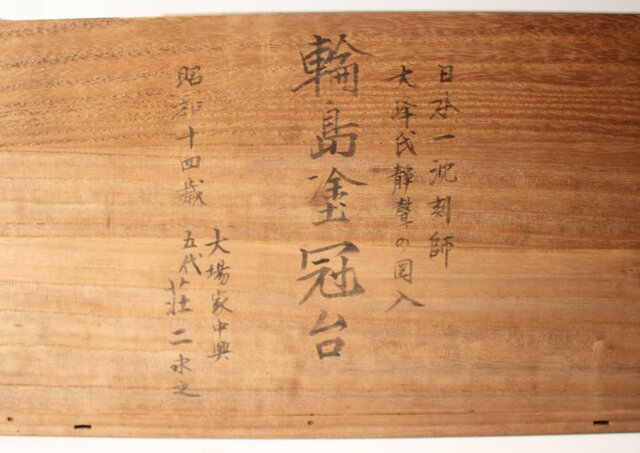 日本一沈刻師
大峰氏静聲の図入
輪島塗冠台
昭和十四歳
大場家中興
五代 荘二求之